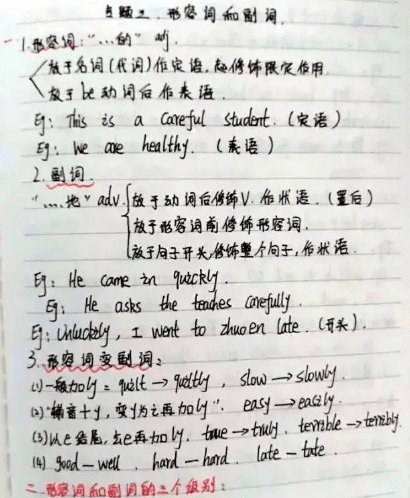 专题三、形容词和副词.
一1.形容词:"…的" adj.
放于名词(代词)作定语,起修饰限定作用.
放于be动词后作表语.
Eg: This is a careful student. (定语)
Eg: We are healthy. (表语)
2.副词.
"…地" adv. 放于动词后修饰V.作状语.(置后)
放于形容词前修饰形容词.
放于句子开头,修饰整个句子,作状语.
Eg: He came in quickly.
Eg: He asks the teaches carefully.
Eg: Unluckily, I went to zhuoen late. (开头).
3.形容词变副词:
(1)一般加ly: quilt → quiltly, slow → slowly.
(2)"辅音+y,变y为i再加ly". easy → easily.
(3)以e结尾,去e再加ly. true → truly. terrible → terribly.
(4) good — well. hard — hard. late — late.
二.形容词和副词的三个级别: